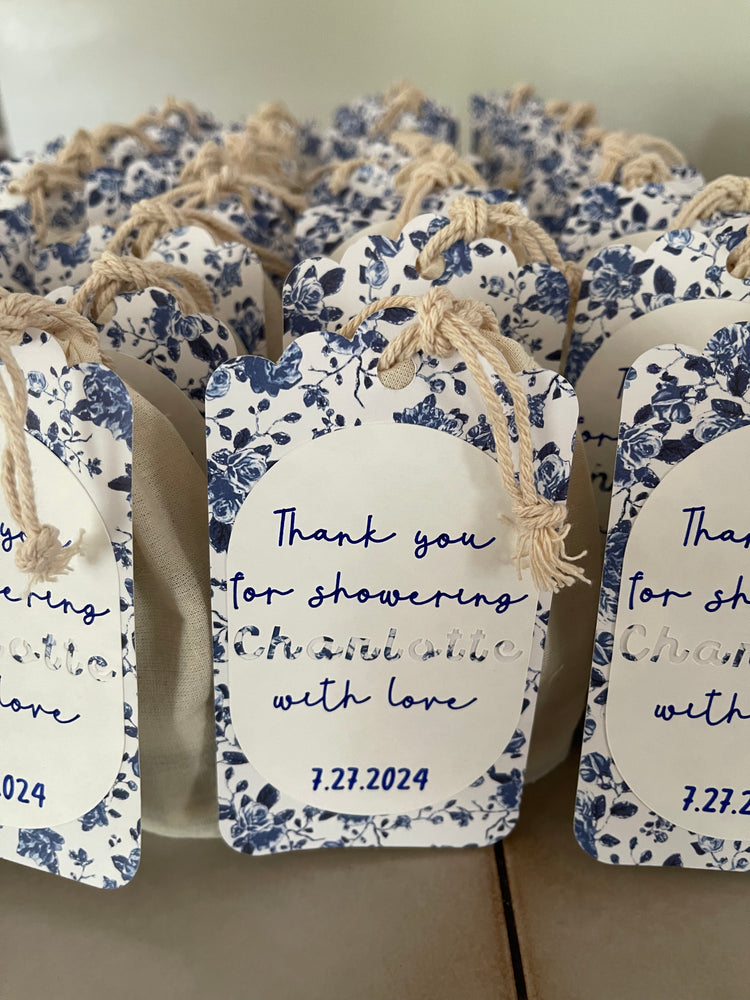 Thank you
for showering
Charlotte
with love
7.27.2024
you
ering
lotte
love
.024
Than
for sh
Char
with
7.27.2